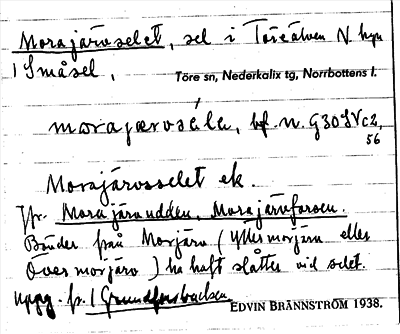 Morajärvselet, sel i Töreälven N. hgn
i Småsel,
Töre sn, Nederkalix tg, Norrbottens l.
morajærvséle, bf. n. G30SVc2,
56
Morajärvsselet ek.
Jfr. Morajärvudden, Morajärvforsen.
Bönder från Morjärv (Yttermorjärv eller
Övermorjärv) ha haft slåtter vid selet.
Uppg. fr. i Grundforsbacken
EDVIN BRÄNNSTRÖM 1938.